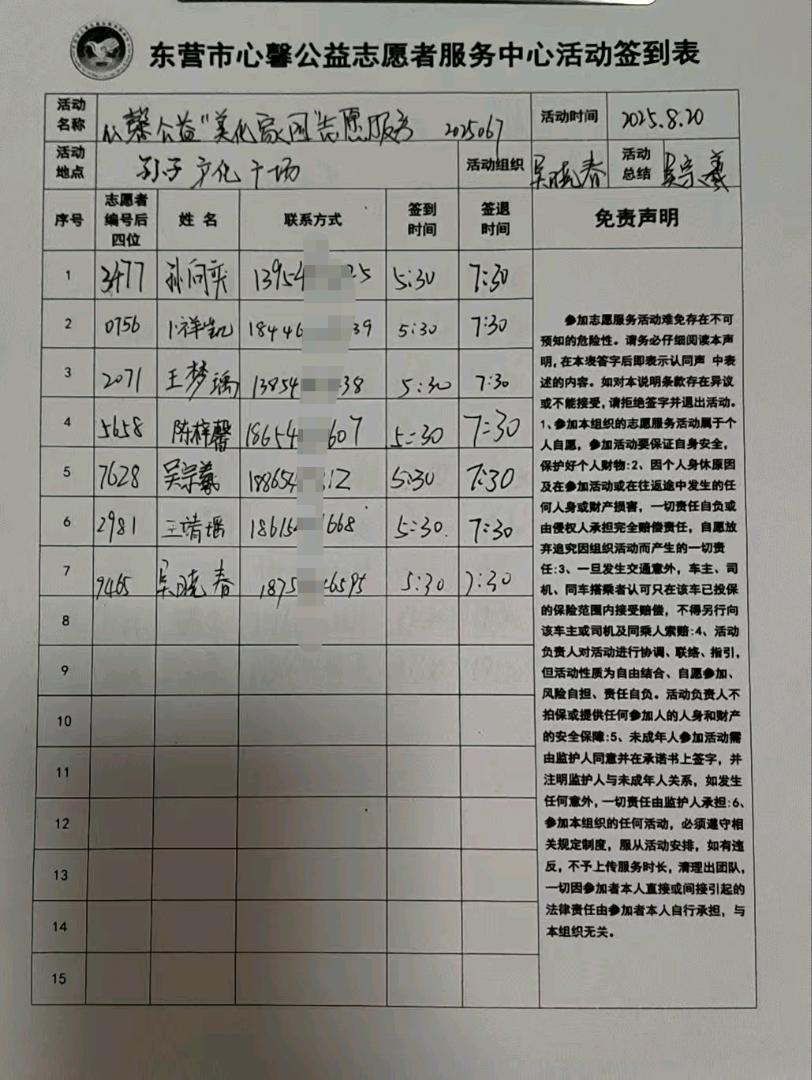 东营市心馨公益志愿者服务中心活动签到表
活动名称 心馨公益“美化家园”志愿服务 2025067 活动时间 2025.8.20
活动地点 孙子文化广场 活动组织 吴晓春 活动总结 吴宗羲
序号 志愿者编号后四位 姓名 联系方式 签到时间 签退时间 免责声明
1 3477 孙问奕 13954 25 5:30 7:30
2 0756 祥凯 18446 39 5:30 7:30
3 2071 王梦瑀 13854 38 5:30 7:30
4 5658 陈梓馨 18654 607 5:30 7:30
5 7628 吴宗羲 188654 12 5:30 7:30
6 2981 王靖瑶 18615 1668 5:30 7:30
7 9465 吴晓春 1875 46595 5:30 7:30
8
9
10
11
12
13
14
15
参加志愿服务活动难免存在不可
预知的危险性。请务必仔细阅读本声
明,在本表签字后即表示认同声 中表
述的内容。如对本说明条款存在异议
或不能接受,请拒绝签字并退出活动。
1、参加本组织的志愿服务活动属于个
人自愿，参加活动要保证自身安全，
保护好个人财物:2、因个人身休原因
及在参加活动或在往返途中发生的任
何人身或财产损害，一切责任自负或
由侵权人承担完全赔偿责任，自愿放
弃追究因组织活动而产生的一切责
任:3、一旦发生交通意外，车主、司
机、同车搭乘者认可只在该车已投保
的保险范围内接受赔偿，不得另行向
该车主或司机及同乘人索赔:4、活动
负责人对活动进行协调、联络、指引，
但活动性质为自由结合、自愿参加、
风险自担、责任自负。活动负责人不
拍保或提供任何参加人的人身和财产
的安全保障:5、未成年人参加活动需
由监护人同意并在承诺书上签字，并
注明监护人与未成年人关系，如发生
任何意外，一切责任由监护人承担:6、
参加本组织的任何活动，必须遵守相
关规定制度，服从活动安排，如有违
反，不予上传服务时长，清理出团队，
一切因参加者本人直接或间接引起的
法律责任由参加者本人自行承担，与
本组织无关。